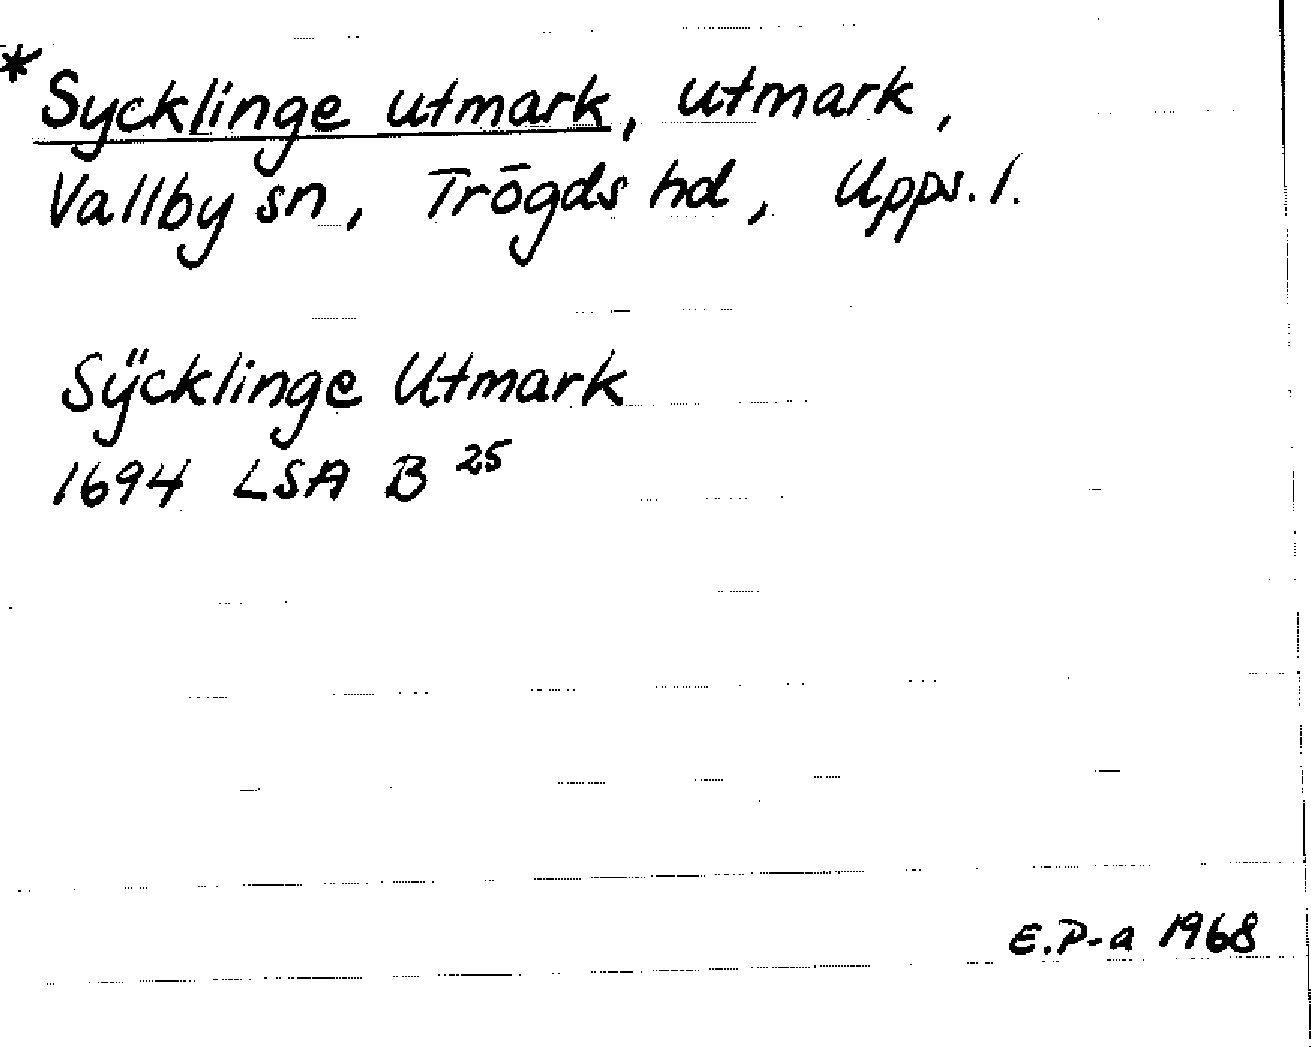 * Sycklinge utmark, utmark,
Vallby sn, Trögds hd, Upps. l.
Sÿcklinge Utmark
1694 LSA B 25
E.P-a 1968